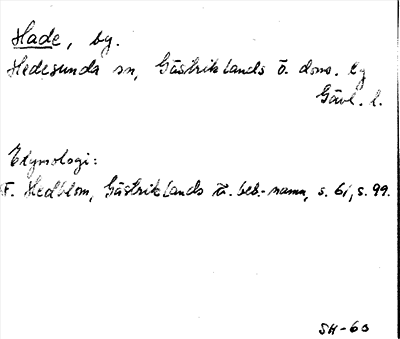 Hade, by.
Hedesunda sn, Gästriklands ö. doms. tg
Gävl. l.
Etymologi:
F. Hedblom, Gästriklands ä. beb.-namn, s. 61, s. 99.
SH-60